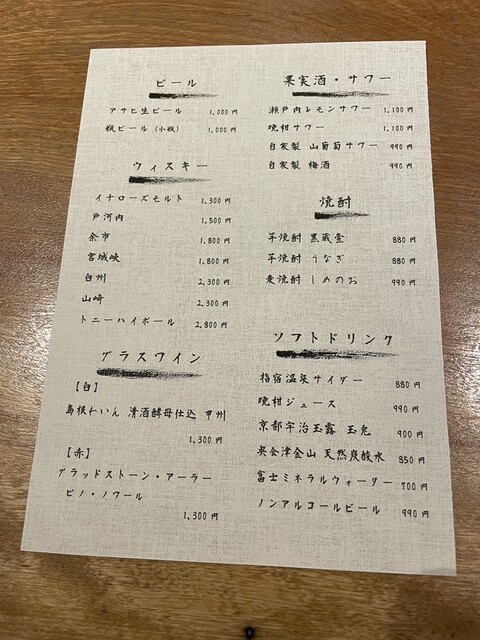 ビール
アサヒ生ビール 1,000円
瓶ビール（小瓶） 1,000円
ウィスキー
イチローズモルト 1,300円
戸河内 1,500円
余市 1,800円
宮城峡 1,800円
白州 2,300円
山崎 2,300円
トニーハイボール 2,800円
グラスワイン
【白】
島根わいん 清酒酵母仕込 甲州
1,300円
【赤】
グラッドストーン・アーラー
ピノ・ノワール
1,300円
果実酒・サワー
瀬戸内レモンサワー 1,100円
晩柑サワー 1,100円
自家製 山葡萄サワー 990円
自家製 梅酒 990円
焼酎
芋焼酎 黒蔵壺 880円
芋焼酎 うなぎ 880円
麦焼酎 しめのお 990円
ソフトドリンク
指宿温泉サイダー 880円
晩柑ジュース 990円
京都宇治玉露 玉兎 900円
奥会津金山 天然炭酸水 850円
富士ミネラルウォーター 700円
ノンアルコールビール 990円